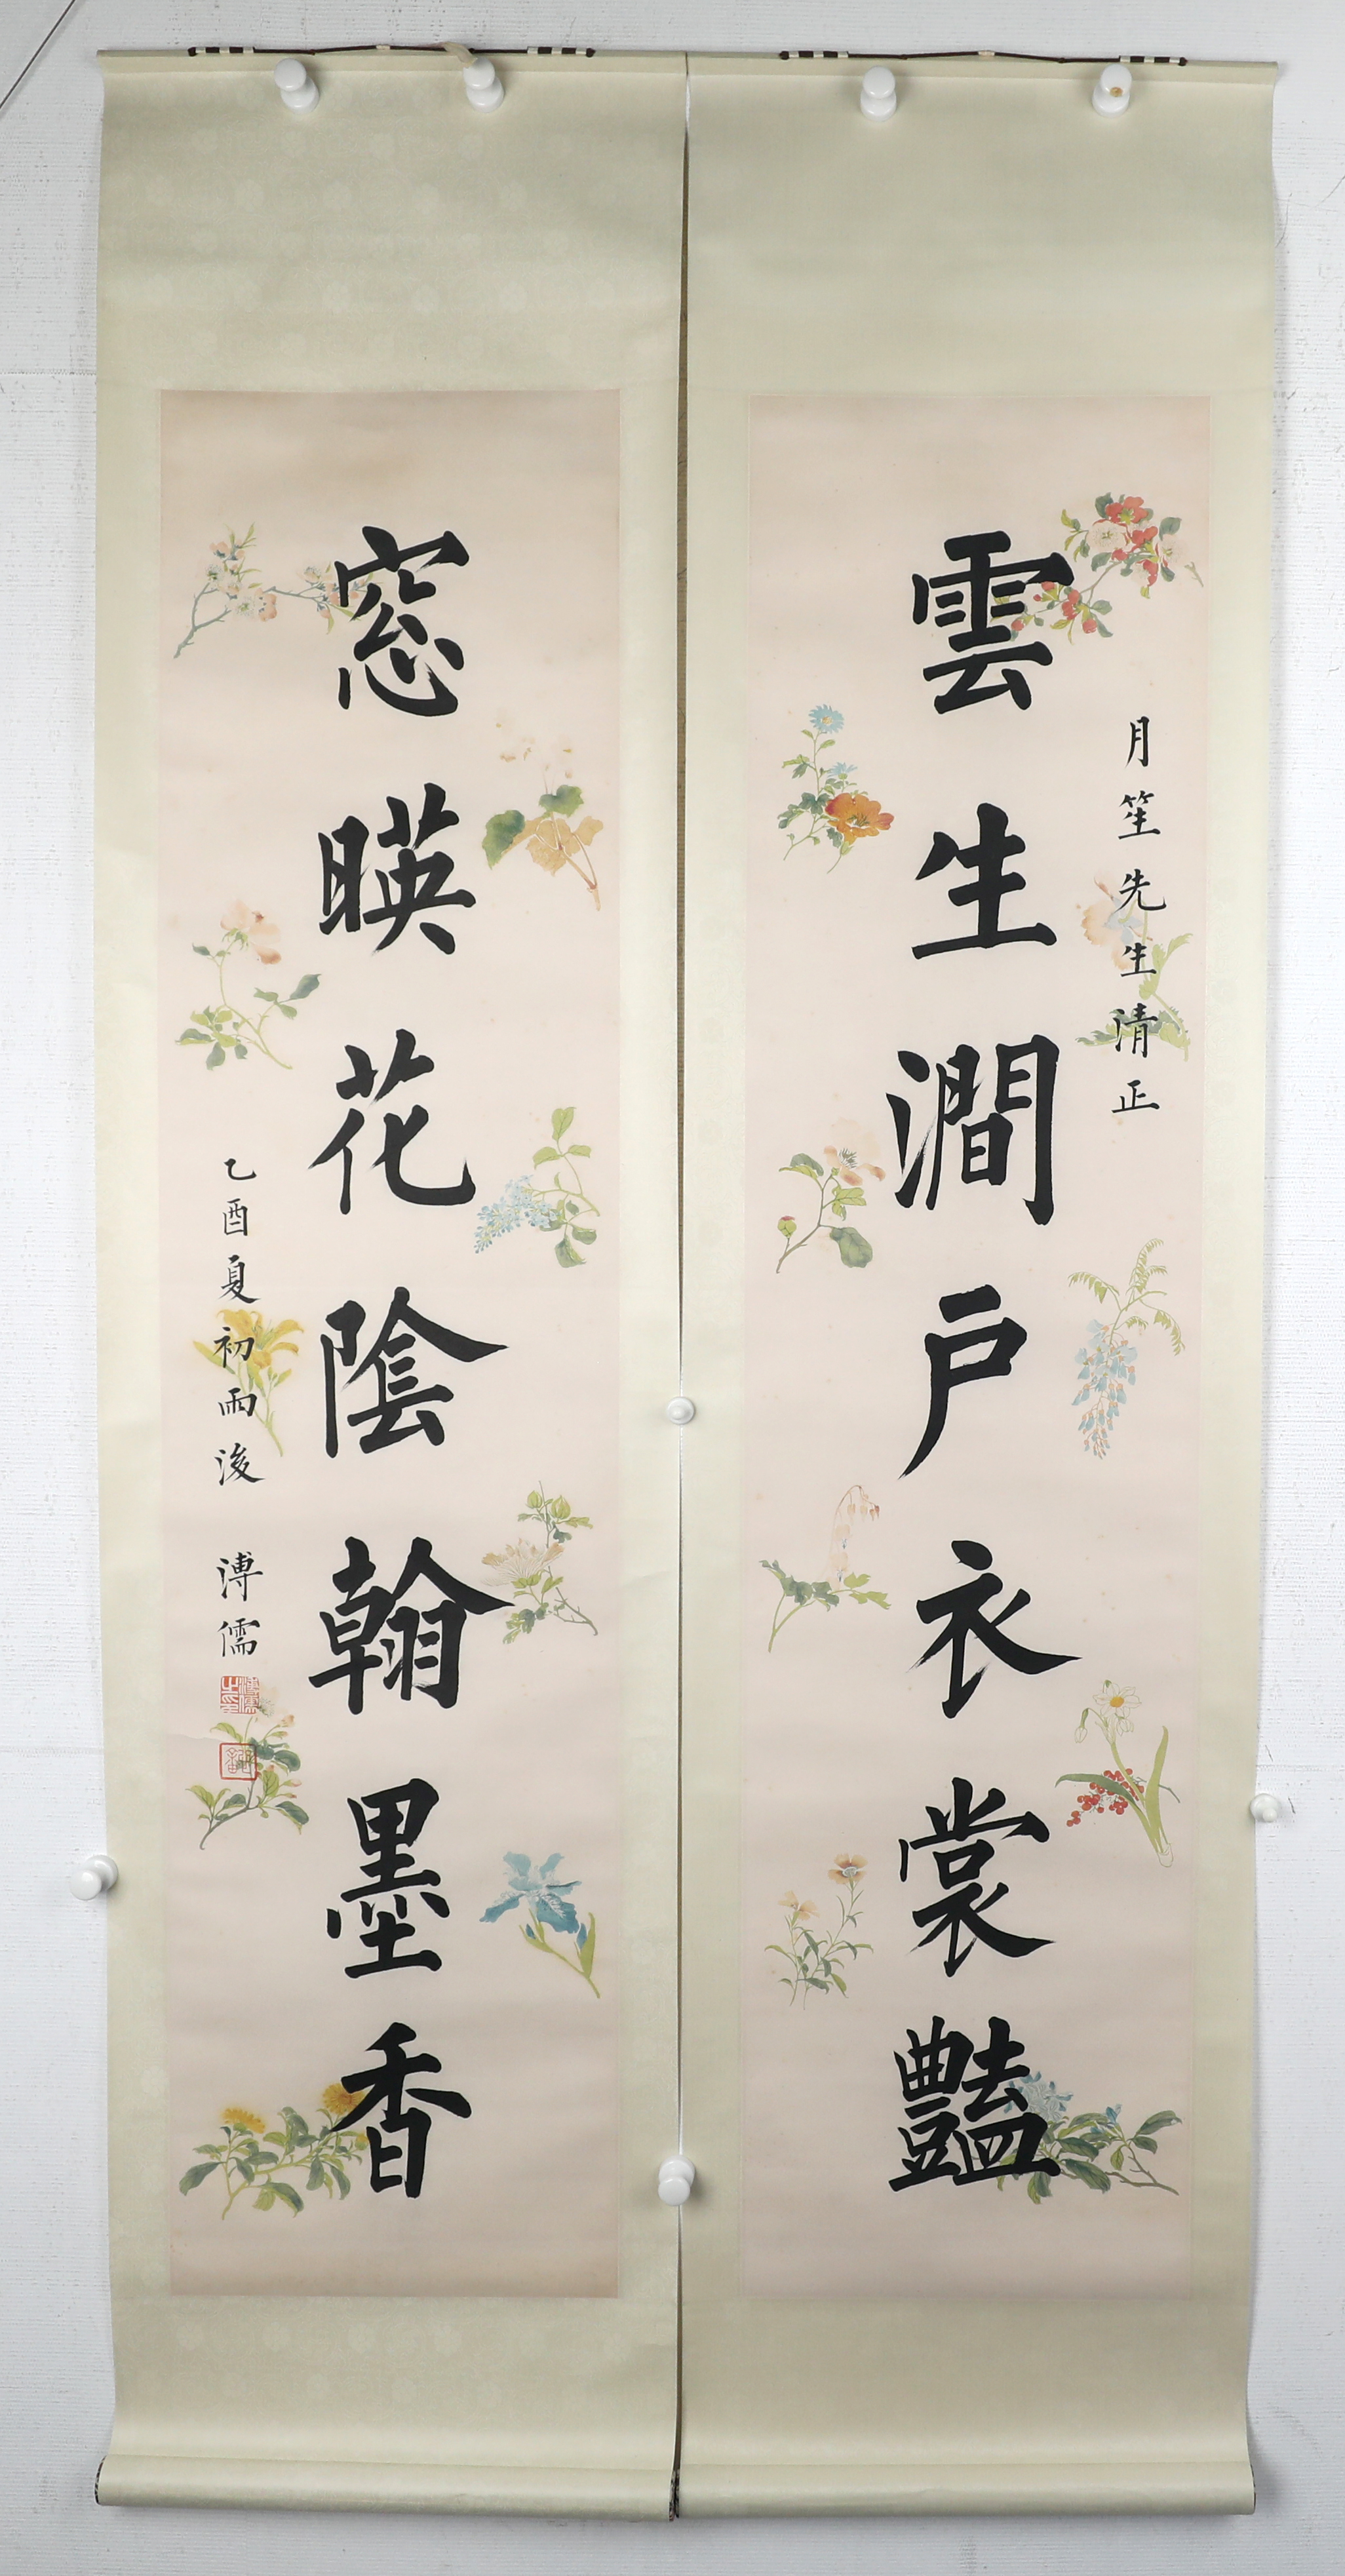 月笙先生清正
雲生澗戶衣裳豔
窓暎花陰翰墨香
乙酉夏初雨後 溥儒
溥儒之印